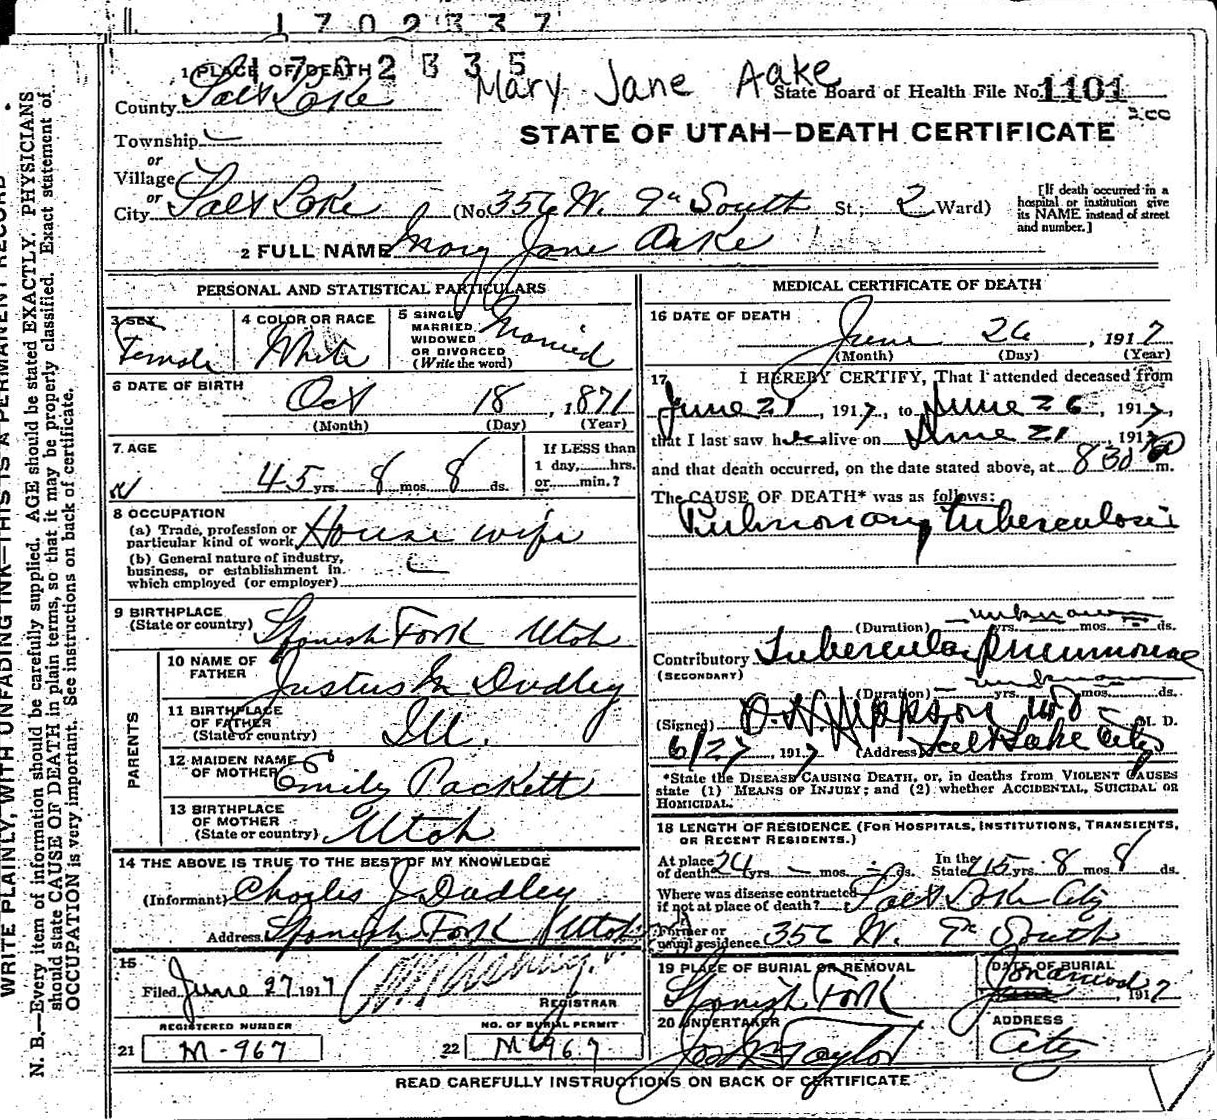 1702337
1702335
Mary Jane Aake
1 PLACE OF DEATH
County Salt Lake
State Board of Health File No. 1101
Township
STATE OF UTAH—DEATH CERTIFICATE
or
Village
or
City Salt Lake (No. 356 W. 9th South St.; 2 Ward)
[If death occurred in a hospital or institution give its NAME instead of street and number.]
2 FULL NAME Mary Jane Aake
PERSONAL AND STATISTICAL PARTICULARS
3 SEX Female
4 COLOR OR RACE White
5 SINGLE MARRIED WIDOWED OR DIVORCED (Write the word) Married
6 DATE OF BIRTH Oct 18, 1871
(Month) (Day) (Year)
7. AGE
45 yrs. 8 mos. 8 ds.
If LESS than 1 day, hrs. or min.?
8 OCCUPATION
(a) Trade, profession or particular kind of work House wife
(b) General nature of industry, business, or establishment in which employed (or employer)
9 BIRTHPLACE (State or country) Spanish Fork Utah
PARENTS
10 NAME OF FATHER Justus M Dudley
11 BIRTHPLACE OF FATHER (State or country) Ill.
12 MAIDEN NAME OF MOTHER Emily Packett
13 BIRTHPLACE OF MOTHER (State or country) Utah
14 THE ABOVE IS TRUE TO THE BEST OF MY KNOWLEDGE
(Informant) Charles J Dudley
Address Spanish Fork Utah
15
Filed June 27 1917
REGISTRAR
REGISTERED NUMBER
21 M-967
NO. OF BURIAL PERMIT
22 M 967
MEDICAL CERTIFICATE OF DEATH
16 DATE OF DEATH
June 26, 1917
(Month) (Day) (Year)
17 I HEREBY CERTIFY, That I attended deceased from
June 21, 1917, to June 26, 1917,
that I last saw her alive on June 21, 1917
and that death occurred, on the date stated above, at 830 P m.
The CAUSE OF DEATH* was as follows:
Pulmonary tuberculosis
(Duration) unknown yrs. mos. ds.
Contributory Tubercular pneumonia
(SECONDARY)
(Duration) unknown yrs. mos. ds.
(Signed) M. D.
6/27, 1917 (Address) Salt Lake City
*State the DISEASE CAUSING DEATH, or, in deaths from VIOLENT CAUSES state (1) MEANS OF INJURY; and (2) whether ACCIDENTAL, SUICIDAL OR HOMICIDAL.
18 LENGTH OF RESIDENCE (FOR HOSPITALS, INSTITUTIONS, TRANSIENTS, OR RECENT RESIDENTS.)
At place of death 24 yrs. mos. ds. In the State 45 8 mos 8 ds.
Where was disease contracted if not at place of death? Salt Lake City
Former or usual residence 356 W. 9th South
19 PLACE OF BURIAL OR REMOVAL
Spanish Fork
DATE OF BURIAL
1917
20 UNDERTAKER
Taylor
ADDRESS
City
READ CAREFULLY INSTRUCTIONS ON BACK OF CERTIFICATE
WRITE PLAINLY, WITH UNFADING INK—THIS IS A PERMANENT RECORD
N. B.—Every item of information should be carefully supplied. AGE should be stated EXACTLY. PHYSICIANS
should state CAUSE OF DEATH in plain terms, so that it may be properly classified. Exact statement of
OCCUPATION is very important. See instructions on back of certificate.